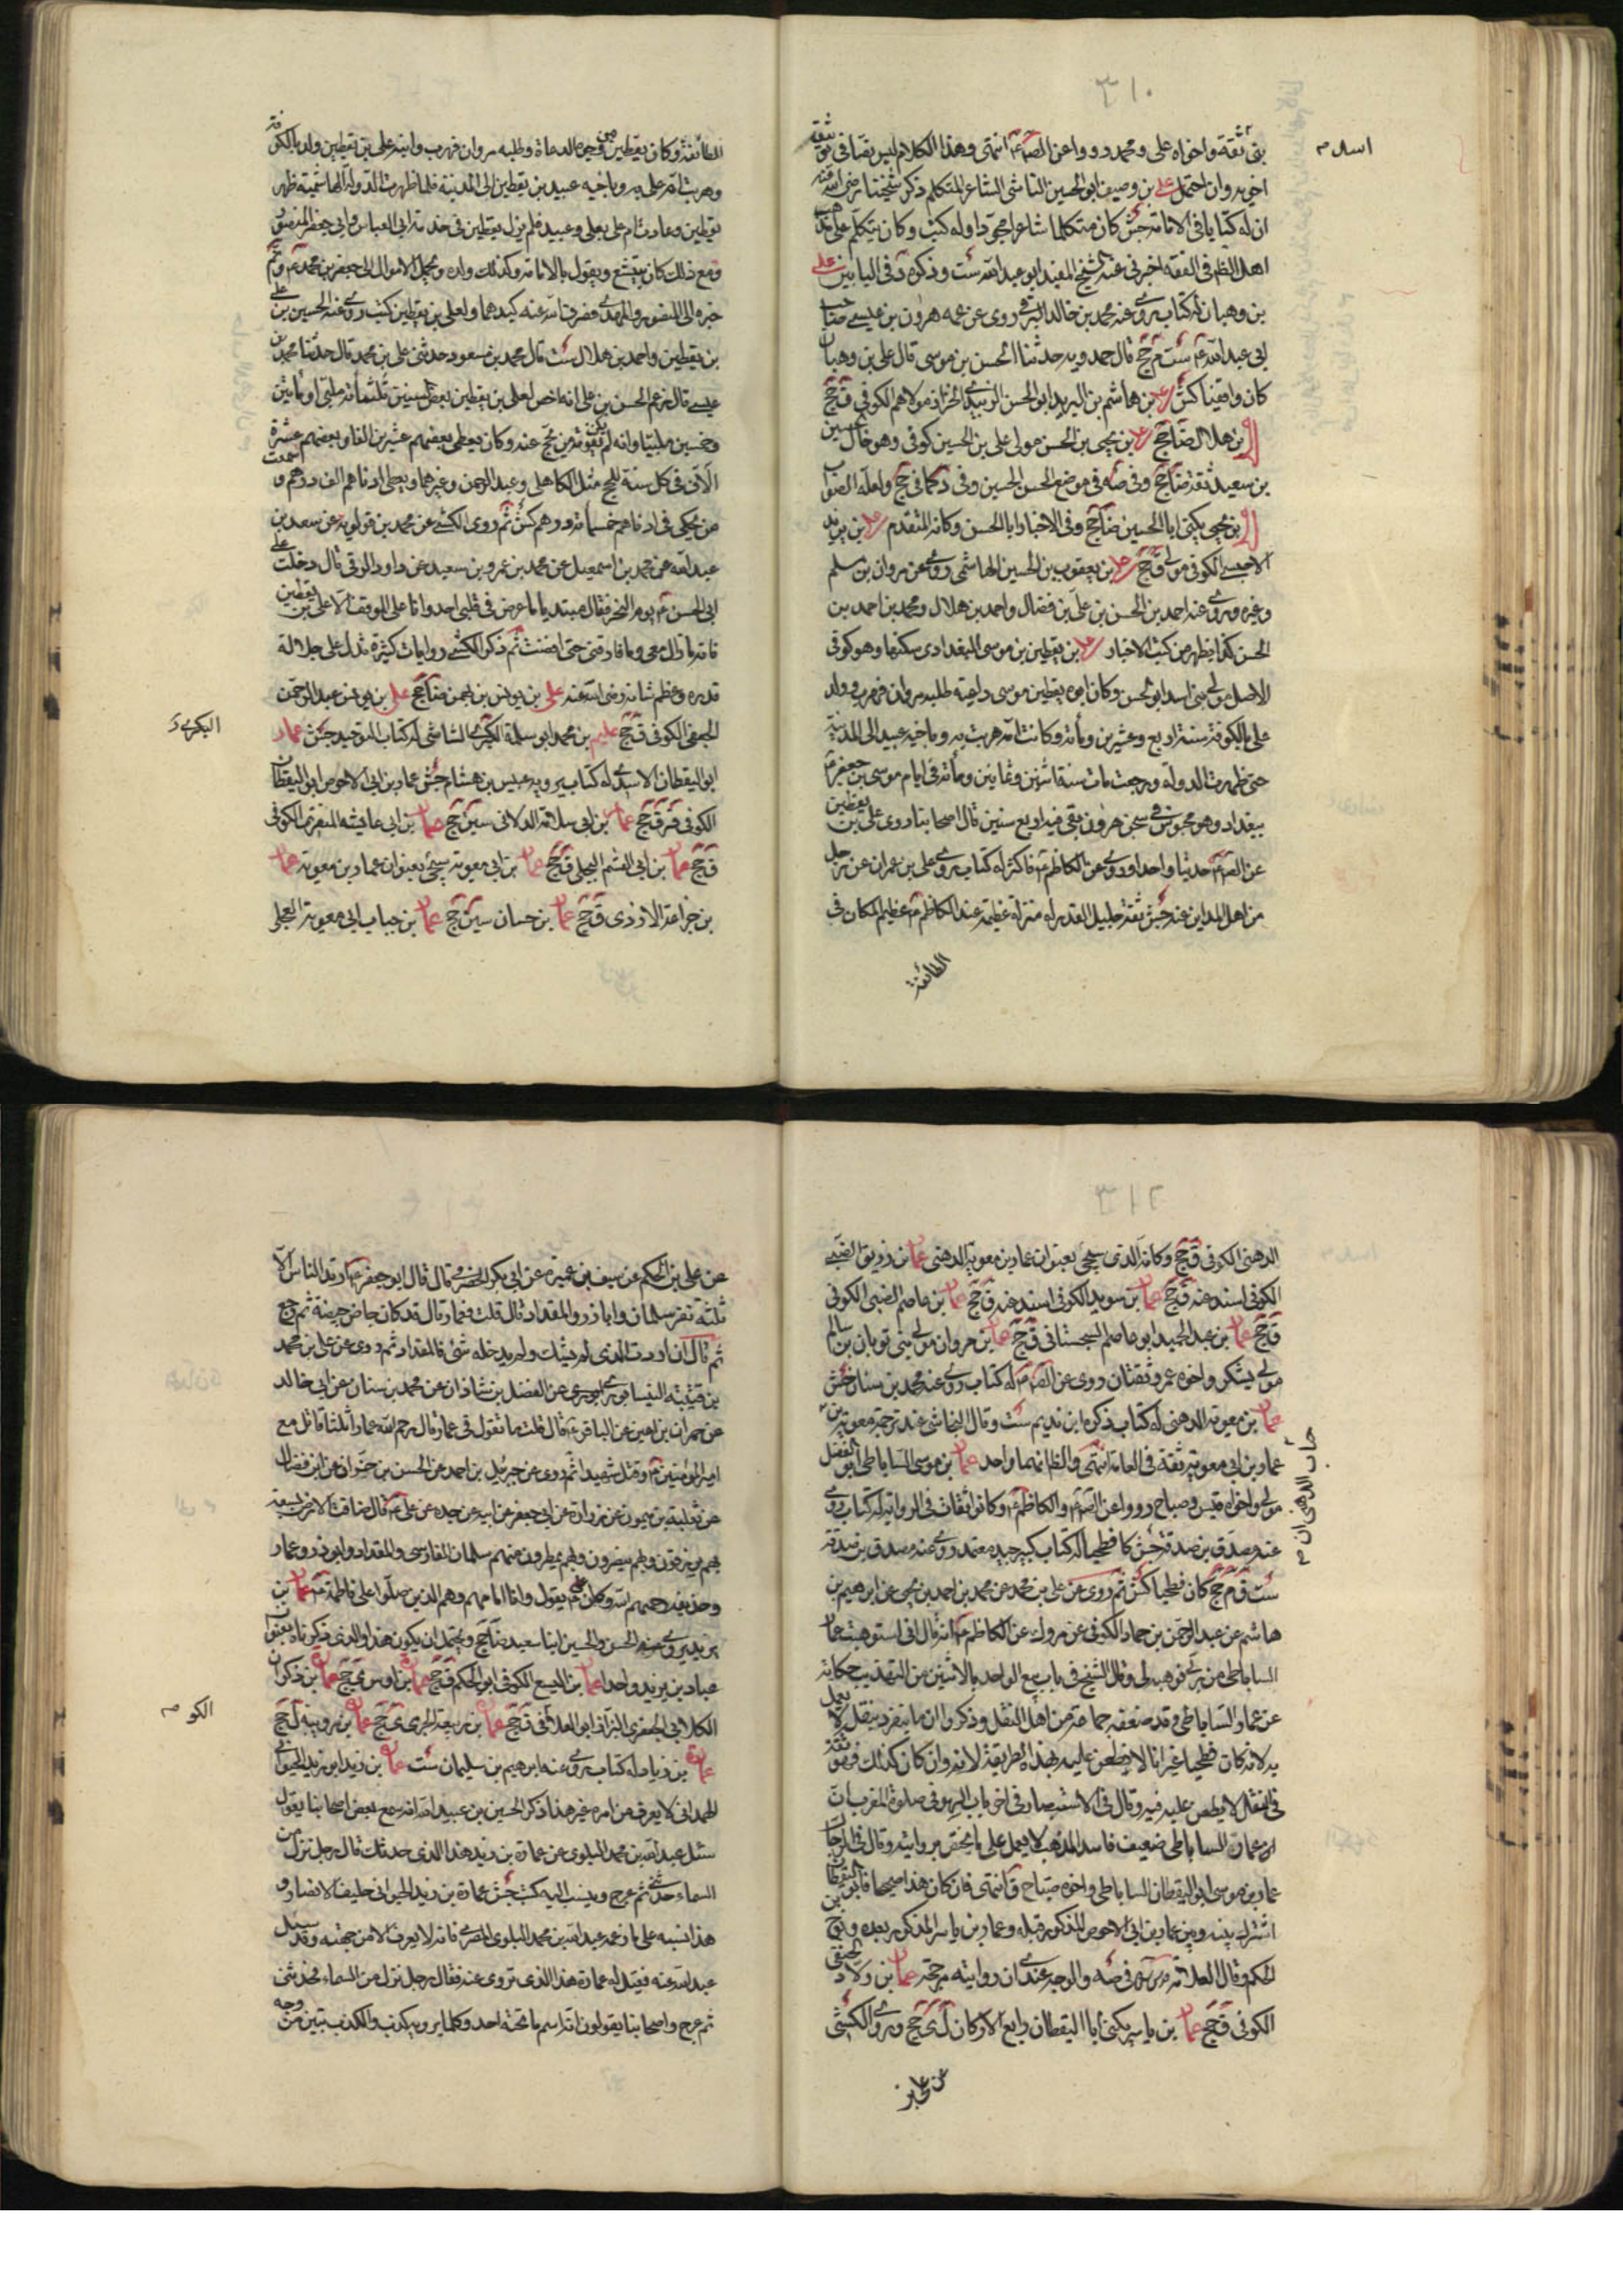 ٣١٠
بنى ثقة واخواه على ومحمد رووا عن الصّ ع انتهى وهذا الكلام ليس نصّا فى توثيق
اخويه وان احتمل على بن وصيف ابو الحسين الناشى الشاعر المتكلم ذكر شيخنا رضى الله عنه
ان له كتابا فى الامامة جش كان متكلما شاعرا مجوّدا وله كتب وكان يتكلم على مذهب
اهل الظاهر فى الفقه اخبرنى عنه الشيخ المفيد ابو عبد الله ست وذكره فى البابين على
بن وهبان له كتاب روى عنه محمد بن خالد البرقى روى عن عمه هرون بن عيسى صاحب
ابى عبد الله ع ست م جخ قال حمدويه حدثنا الحسن بن موسى قال على بن وهبان
كان واقفيا كش على بن هاشم بن البريد ابو الحسن الزبيدى الخزاز مولاهم الكوفى ق جخ
بن هلال ضا جخ على بن يحيى بن الحسن مولى على بن الحسين كوفى وهو خال الحسين
بن سعيد ثقة ضا جخ وفى صه فى موضع الحسن الحسين وفى د كما فى جخ ولعله الصواب
بن يحيى يكنى ابا الحسين ضا جخ وفى الاخبار ابا الحسن وكانه المتقدم على بن يزيد
الاحمسى الكوفى مولى ق جخ على بن يعقوب بن الحسين الهاشمى روى عن مروان بن مسلم
وغيره وروى عنه احمد بن الحسن بن على بن فضال واحمد بن هلال ومحمد بن احمد بن
الحسن كذا يظهر من كتب الاخبار على بن يقطين بن موسى البغدادى سكنها وهو كوفى
الاصل مولى بنى اسد ابو الحسن وكان ابوه يقطين بن موسى داعية طلبه مروان فهرب وولد
على بالكوفة سنة اربع وعشرين ومأة وكانت امه هربت به وباخيه عبيد الى المدينة
حتى ظهرت الدولة ورجعت مات سنة اثنين وثمانين ومأة فى ايام موسى بن جعفر ع
ببغداد وهو محبوس فى سجن هرون بقى فيه اربع سنين قال اصحابنا روى على بن يقطين
عن الصّ ع حديثا واحدا وروى عن الكاظم ع فاكثر له كتاب روى على بن عمران عن رجل
من اهل المداين عنه جش ثقة جليل القدر له منزلة عظيمة عند الكاظم ع عظيم المكان فى
الطائفة
اسد م
الطائفة وكان يقطين من وجوه الدعاة وطلبه مروان فهرب وابنه على بن يقطين ولد بالكوفة
وهربت امه على به وباخيه عبيد بن يقطين الى المدينة فلما ظهرت الدولة الهاشمية ظهر
يقطين وعادت ام على بعلى وعبيد فلم يزل يقطين فى خدمة ابى العباس وابى جعفر المنصور
ومع ذلك كان يتشيع ويقول بالامامة وكذلك ولده ويحمل الاموال الى جعفر بن محمد ع ونم
خبره الى المنصور والمهدى فصرف الله عنه كيدهما ولعلى بن يقطين كتب روى عنه الحسين بن على
بن يقطين واحمد بن هلال ست قال محمد بن مسعود حدثنى على بن محمد قال حدثنا محمد بن
عيسى قال زعم الحسن بن على انه احصى لعلى بن يقطين بعض السنين ثلثمائة ملبّى او مأتين
وخمسين ملبيا وانه لم يكن يفوته من يحج عنه وكان يعطى بعضهم عشرين الفا وبعضهم عشرة
الآف فى كل سنة للحج مثل الكاهلى وعبد الرحمن وغيرهما ويعطى ادناهم الف درهم وسمعت
من يحكى فى ادناهم خمسمأة درهم كش ثم روى الكشى عن محمد بن قولويه عن سعد بن
عبد الله عن محمد بن اسمعيل عن محمد بن عمرو بن سعيد عن داود الرقى قال دخلت على
ابى الحسن ع يوم النحر فقال مبتديا ما عرض فى قلبى احد وانا على الموقف الا على بن يقطين
فانه ما زال معى وما فارقنى حتى افضت ثم ذكر الكشى روايات كثيرة تدل على جلالة
قدره وعظم شانه رضى الله عنه على بن يونس بن بهمن ضا جخ على بن يونس عبد الرحمن
الجعفى الكوفى ق جخ عليم بن محمد ابو سلمة البكرى الشاشى له كتاب التوحيد جش عمار
ابو اليقظان الاسدى له كتاب يرويه عبيس بن هشام جش عمار بن ابى الاحوص ابو اليقظان
الكوفى قر ق جخ عمار بن ابى سلامة الدالانى سين جخ عمار بن ابى عايشة الكوفى
ق جخ عمار بن ابى القسم البجلى ق جخ عمار بن ابى معوية سيجئ بعنوان عمار بن معوية عمار
الازدى ق جخ عمار بن حسان سين جخ عمار بن خباب ابى معوية العجلى
البكرى
٣١٢
الدهنى الكوفى ق جخ وكانه الذى سيجئ بعنوان عمار بن معوية الدهنى عمار بن زريق الضبى
الكوفى اسند عنه ق جخ عمار بن سويد الكوفى اسند عنه ق جخ عمار بن عاصم الضبى الكوفى
ق جخ عمار بن عبد الحميد ابو عاصم السجستانى ق جخ عمار بن مروان مولى بنى ثوبان بن سالم
مولى يشكر واخوه عمرو ثقتان روى عن الصّ ع له كتاب روى عنه محمد بن سنان جش
عمار بن معوية الدهنى له كتاب ذكره ابن نديم ست وقال النجاشى عند ترجمة معوية بن
عمار بن ابى معوية ثقة فى العامة انتهى والظ انهما واحد عمار بن موسى الساباطى ابو الفضل
مولى واخواه قيس وصباح رووا عن الصّ ع والكاظم ع وكانوا ثقات فى الرواية له كتاب روى
عنه مصدق بن صدقة جش كا فطحيا له كتاب كبير جيد معتمد روى عنه مصدق بن صدقة
ست ق م جخ كان فطحيا كش ثم روى عن على بن محمد عن محمد بن احمد بن يحيى عن ابرهيم بن
هاشم عن عبد الرحمن بن حماد الكوفى عن مروك عن الكاظم ع انه قال انى استوهبت عمار
الساباطى من ربى فوهبه لى وقال الشيخ فى باب بيع الواحد بالاثنين من التهذيب حكاية
عن عمار الساباطى وقد ضعفه جماعة من اهل النقل وذكروا ان ما يتفرد بنقله لا يعمل
به لانه كان فطحيا غير انا لا نطعن عليه بهذه الطريقة لانه وان كان كذلك فهو ثقة
فى النقل لا يطعن عليه فيه وقال فى الاستبصار فى اخر باب السهو فى صلوة المغرب ان
عمار الساباطى ضعيف فاسد المذهب لا يعمل على ما يختص بروايته وقال فى الرجال
عمار بن موسى ابو اليقظان الساباطى واخوه صباح ق انتهى فان كان هذا صحيحا فابو اليقظان
اشترك بينه وبين عمار بن ابى الاحوص المذكور قبله وعمار بن ياسر المذكور بعده
الحكم وقال العلامة فى صه والوجه عندى ان روايته مرجحة عمار بن
الكوفى ق جخ عمار بن ياسر يكنى ابا اليقظان رابع الاركان ل ى جخ وروى الكشى
عن على بن
عن على بن الحكم عن سيف بن عميرة عن ابى بكر الحضرمى قال قال ابو جعفر ع ارتد الناس الا
ثلثة نفر سلمان وابا ذر والمقداد قال قلت فعمار قال قد كان جاض جيضة ثم رجع
ثم قال ان اردت الذى لم يشك ولم يدخله شئ فالمقداد ثم روى عن على بن محمد
بن قتيبة النيسابورى عن الفضل بن شاذان عن محمد بن سنان عن ابى خالد
عن حمران بن اعين عن الباقر ع قال قلت ما تقول فى عمار قال رحم الله عمارا ثلثا قاتل مع
امير المؤمنين ع وقتل شهيدا ثم روى عن جبرئيل بن احمد عن الحسن بن خرزاد عن ابن فضال
عن ثعلبة بن ميمون عن زرارة عن ابى جعفر عن ابيه عن جده عن على ع قال ضاقت الارض بسبعة
بهم يرزقون وبهم ينصرون وبهم يمطرون منهم سلمان الفارسى والمقداد وابو ذر وعمار
وحذيفة رحمهم الله وكان على ع يقول وانا امامهم وهم الذين صلوا على فاطمة ع عمار بن
يزيد يروى عنه الحسن والحسين ابنا سعيد ضا جخ ويحتمل ان يكون هذا والذى ذكرناه بعنوان
عباد بن يزيد واحدا عمار بن اليسع الكوفى ابو الحكم ق جخ عمار بن اوس ى جخ عمارة بن ذكوان
الكلابى الجعفرى البزاز ابو العلا ق جخ عمارة بن ربيعة الجرمى ى جخ عمارة بن رويبة ل جخ
عمارة بن زياد له كتاب روى عنه ابرهيم بن سليمان ست عمارة بن زيد ابو زيد الخيوانى
الهمدانى لا يعرف من امره غير هذا ذكر الحسين بن عبيد الله انه سمع بعض اصحابنا يقول
سئل عبد الله بن محمد البلوى عن عمارة بن زيد هذا الذى حدثك قال رجل نزل من
السماء حدثنى ثم عرج وينسب اليه كتب جش عمارة بن زيد الخيوانى حليف الانصار و
هذا نسبه على ما زعمه عبد الله بن محمد البلوى المصرى فانه لا يعرف الا من جهته وقد سئل
عبد الله عنه فقيل له عمارة هذا الذى تروى عنه فقال رجل نزل من السماء فحدثنى
ثم عرج واصحابنا يقولون انه اسم ما تحته احد وكلما يرويه كذب والكذب بيّن من وجه
الكو م